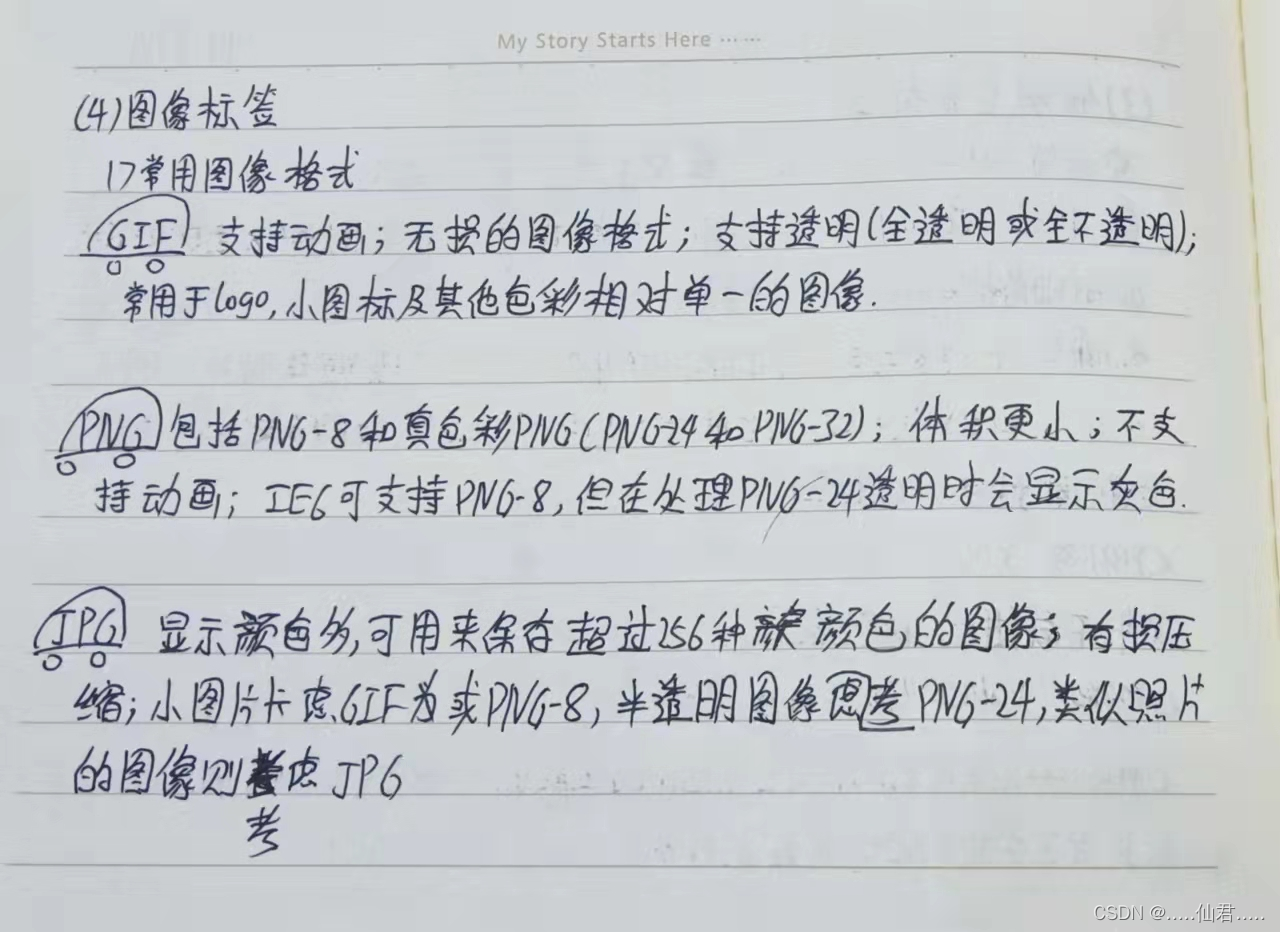 My Story Starts Here ……
(4)图像标签
1>常用图像格式
GIF 支持动画；无损的图像格式；支持透明(全透明或全不透明)；
常用于logo,小图标及其他色彩相对单一的图像.
PNG 包括PNG-8和真色彩PNG(PNG-24和PNG-32)；体积更小；不支
持动画；IE6可支持PNG-8,但在处理PNG-24透明时会显示灰色.
JPG 显示颜色多,可用来保存超过256种颜色的图像；有损压
缩；小图片卡虑GIF为或PNG-8,半透明图像虑考PNG-24,类似照片
的图像则虑JPG
考
CSDN @.....仙君.....